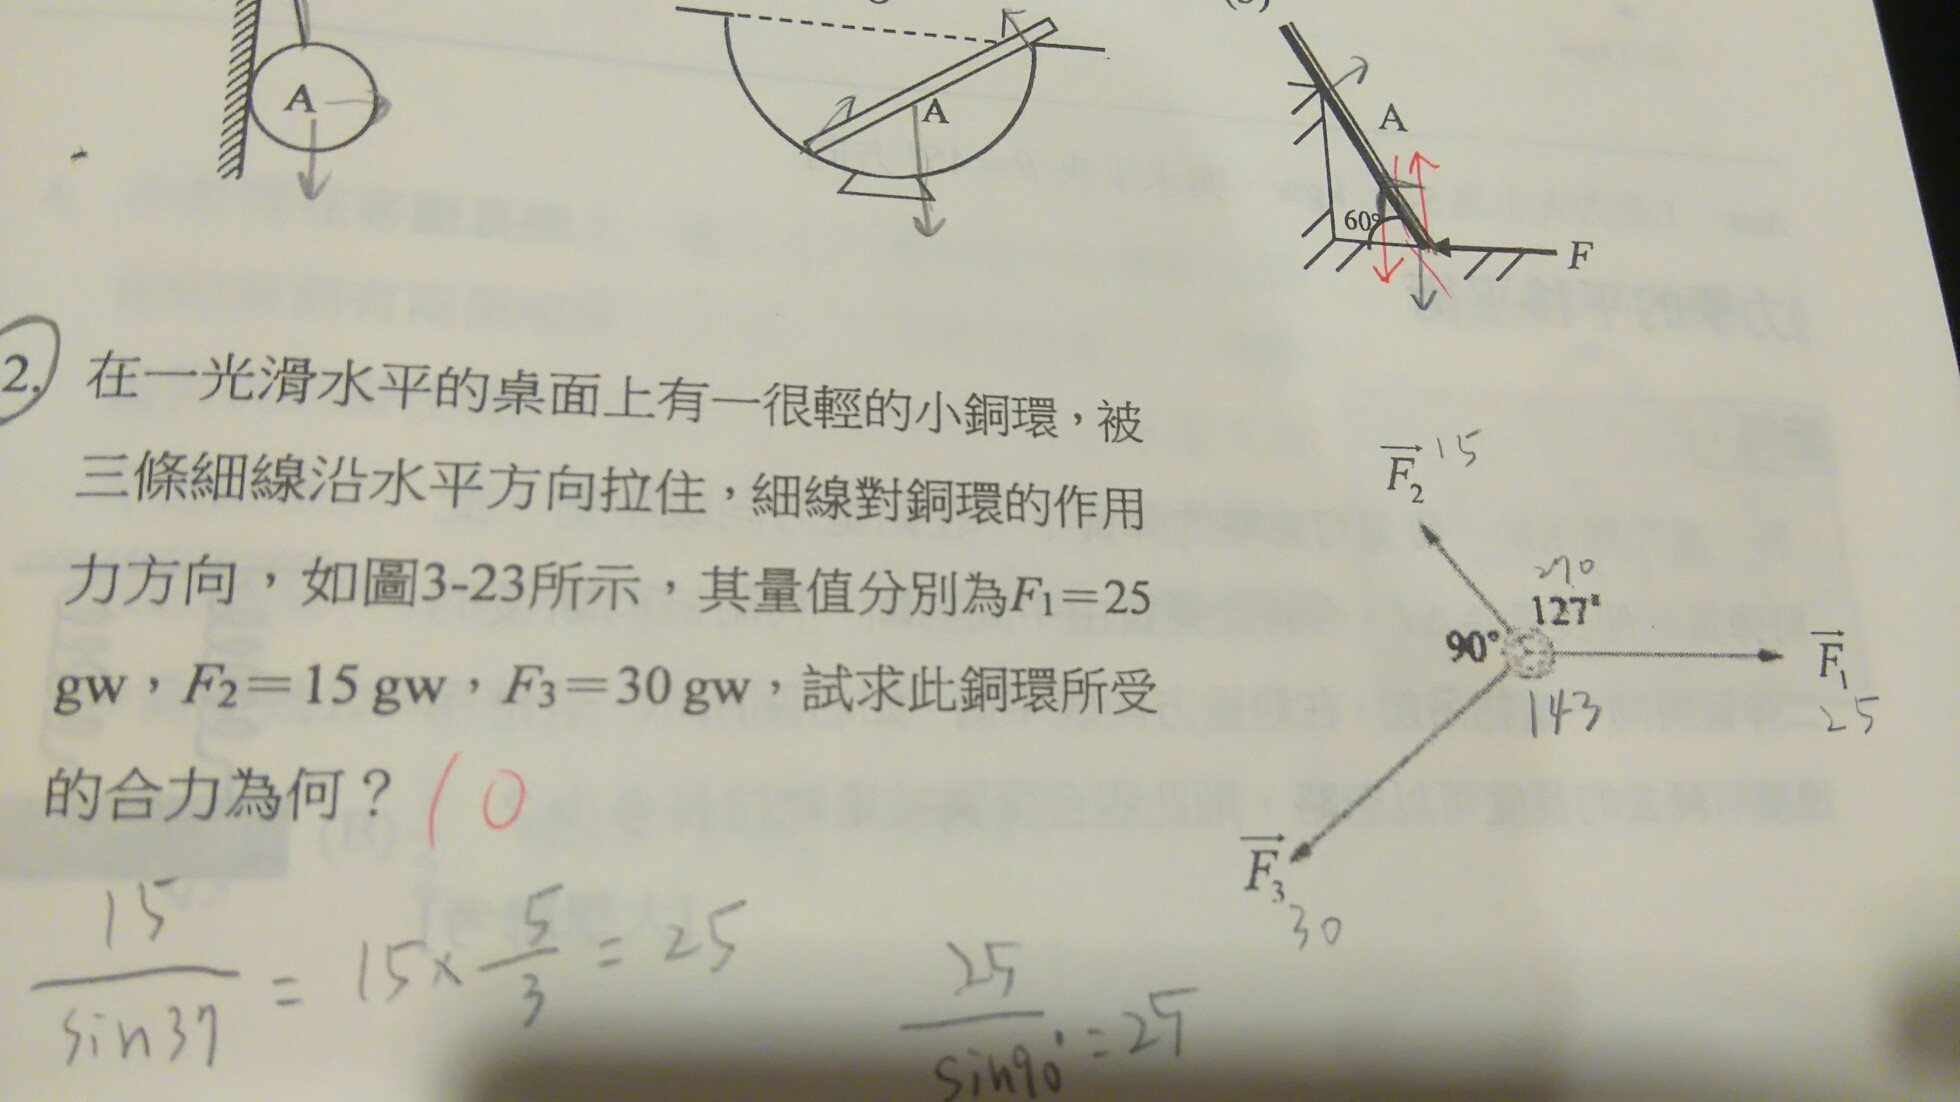 A
A
A
60°
F
2. 在一光滑水平的桌面上有一很輕的小銅環，被
三條細線沿水平方向拉住，細線對銅環的作用
力方向，如圖3-23所示，其量值分別為F₁＝25
gw，F₂＝15 gw，F₃＝30 gw，試求此銅環所受
的合力為何？ 10
F₂ 15
127°
90°
F₁
25
143
F₃
30
15/sin37 = 15×5/3 = 25
25/sin90° = 25